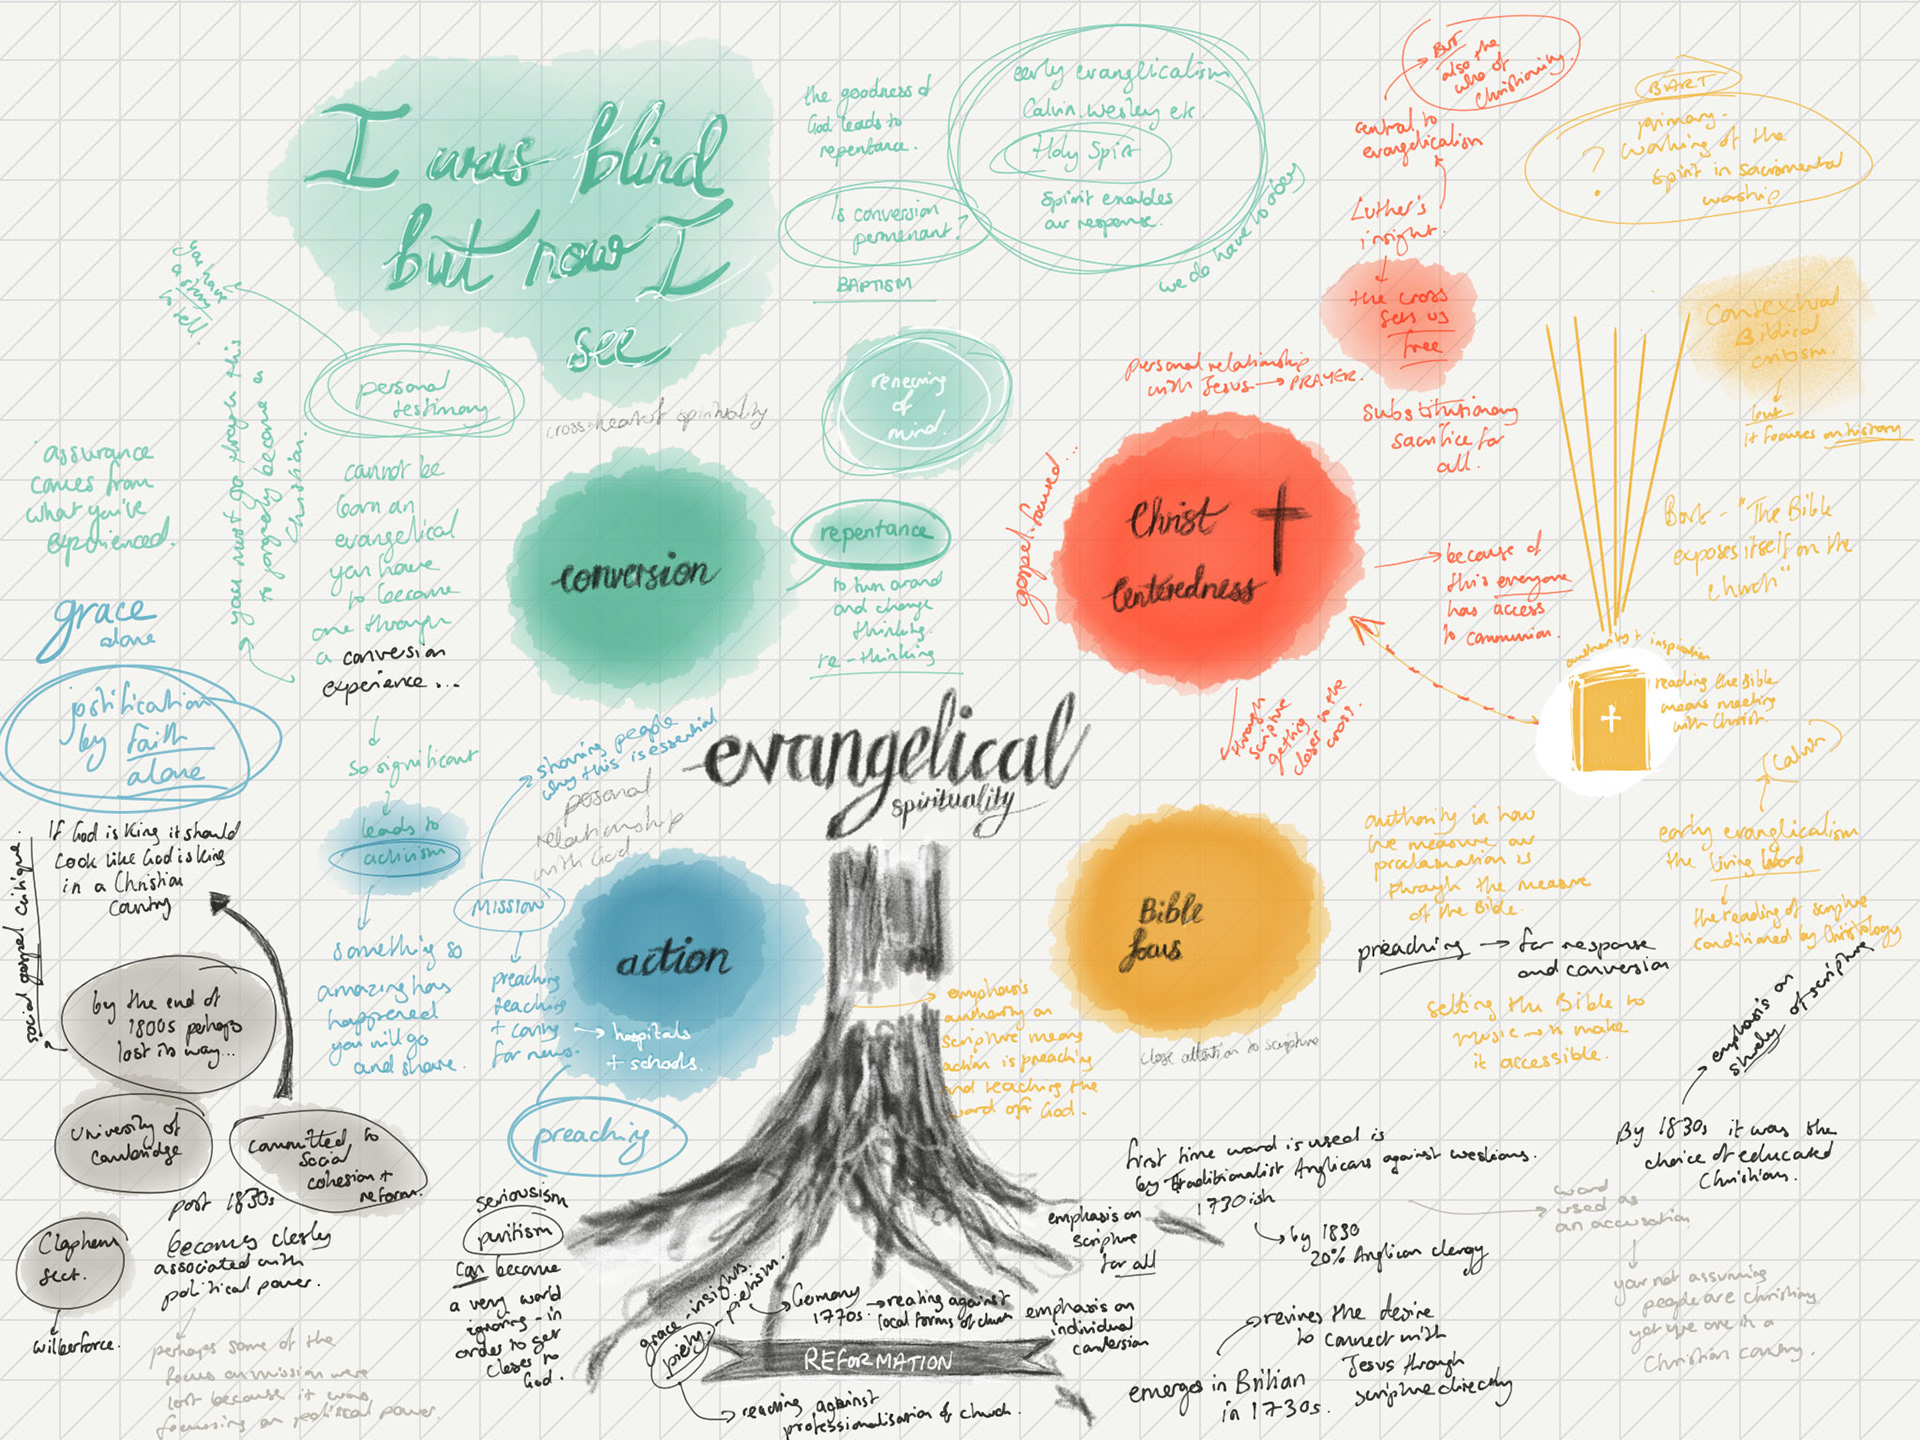 I was blind
but now I
see
the goodness of
God leads to
repentance.
Is conversion
permenant?
BAPTISM
early evanglicalism
Calvin. Wesley etc.
Holy Spirit
Spirit enables
our response.
we do have to obey
BUT
also the
who of
Christianity.
central to
evangelication
Luther's
insight.
the cross
sets us
free
BART
primary -
working of the
spirit in sacramental
worship
?
Contextual
Biblical
critism.
but
it focuses on history
you have
a story
to tell.
personal
testimony
you must go through this
to properly become a
Christian.
assurance
comes from
what you've
experienced.
cross-hearted spirituality
renewing
of
mind.
personal relationship
with Jesus → PRAYER.
substitutionary
sacrifice for
all.
gospel-focused...
cannot be
born an
evangelical
you have
to become
one through
a conversion
experience...
conversion
repentance
to turn around
and change
thinking.
re-thinking
Christ
Centeredness
because of
this everyone
has access
to communion.
Bart - "The Bible
exposes itself on the
church"
authority + inspiration
reading the Bible
means meeting
with Christ.
through
scripture
getting
closer to the
cross.
grace
alone
justification
by faith
alone
so significant
leads to
activism
something so
amazing has
happened
you will go
and share.
showing people
why this is essential
personal
relationship
with God.
evangelical
spirituality
MISSION
preaching
teaching
+ caring
for news.
→ hospitals
+ schools.
action
preaching
Bible
focus
close attention to scripture
emphasis
authority on
scripture means
action is preaching
and teaching the
word off God.
authority in how
we measure our
proclamation is
through the measure
of the Bible.
(Calvin)
early evanglicalism
the living word
the reading of scripture
conditioned by Christology
preaching → for response
and conversion
setting the Bible to
music → make
it accessible.
emphasis on
study of scripture
By 1830s it was the
choice of educated
Christians.
If God is King it should
look like God is King
in a Christian
Country
social gospel critique.
by the end of
1800s perhaps
lost its way...
University of
Cambridge
committed to
social
cohesion +
reform.
post 1830s
becomes closely
associated with
political power.
Clapham
sect.
wilberforce.
perhaps some of the
focus on mission were
lost because it was
focussing on political power.
seriousism
puritism
can become
a very world
ignoring - in
order to get
closer to
God.
grace - insights.
piety. - pietism.
Germany
1770s → reacting against
local forms of church
REFORMATION
reacting against
professionalisation of church.
first time word is used is
by traditionalist Anglicans against weslians.
1730ish
by 1830
20% Anglican clergy
word
used as
an accusation
your not assuming
people are Christians
yet your one in a
Christian country.
emphasis on
scripture
for all
emphasis on
individual
conversion
emerges in Britian
in 1730s.
revives the desire
to connect with
Jesus through
scripture directly